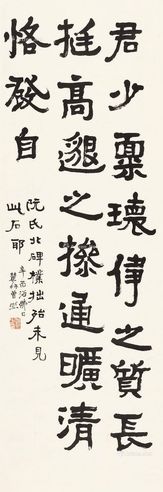 君少稟瓌偉之質長
挺高邈之操通曠清
恪發自
阮氏北碑樸拙殆未見
此石耶
辛酉浴佛日
農髯曾熙